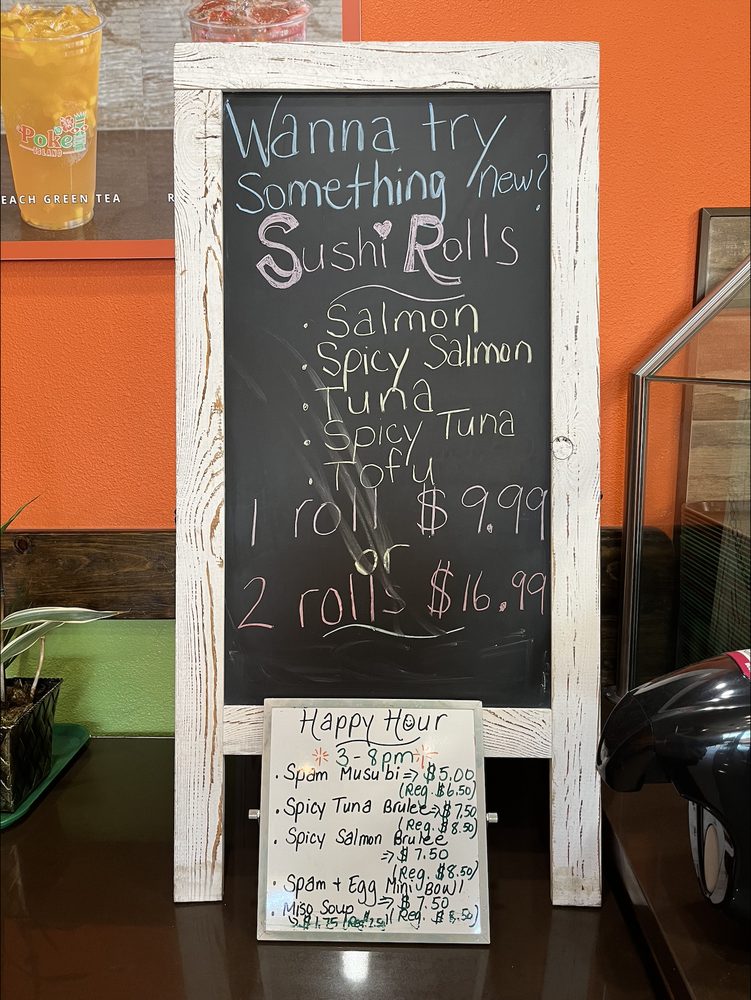 Poke
ISLAND
EACH GREEN TEA
R
Wanna try
something new?
Sushi Rolls
• Salmon
• Spicy Salmon
• Tuna
• Spicy Tuna
• Tofu
1 roll $9.99
or
2 rolls $16.99
Happy Hour
3-8pm
• Spam Musubi => $5.00
(Reg. $6.50)
• Spicy Tuna Brulee => $7.50
(Reg. $8.50)
• Spicy Salmon Brulee
=> $7.50
(Reg. $8.50)
• Spam + Egg Mini Bowl
=> $7.50
• Miso Soup (Reg. $8.50)
$1.75 (Reg. 2.50)